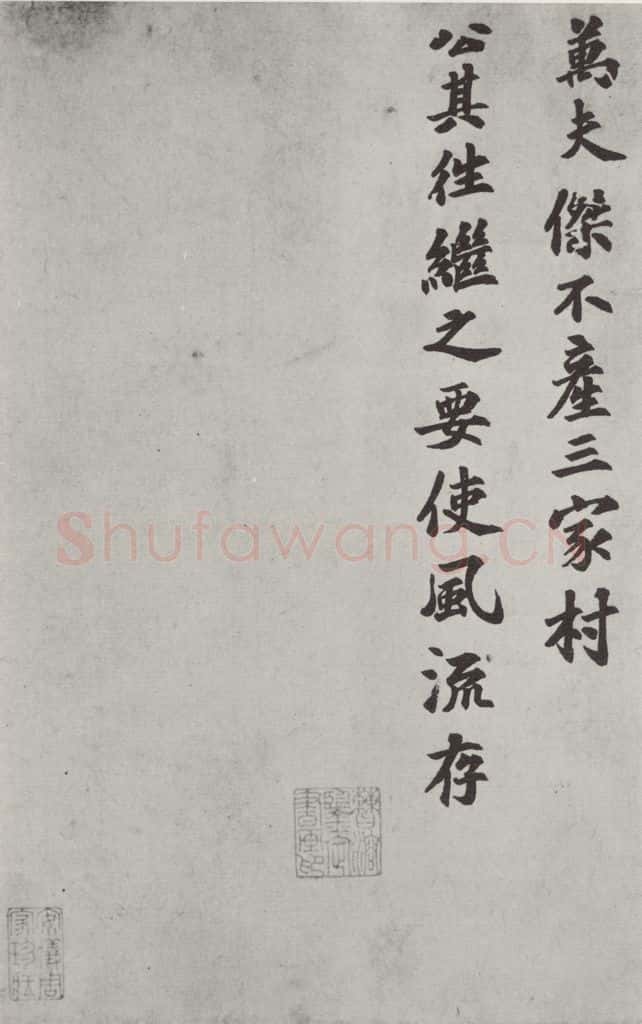 萬夫傑不產三家村
公其往繼之要使風流存
Shufawang.CN